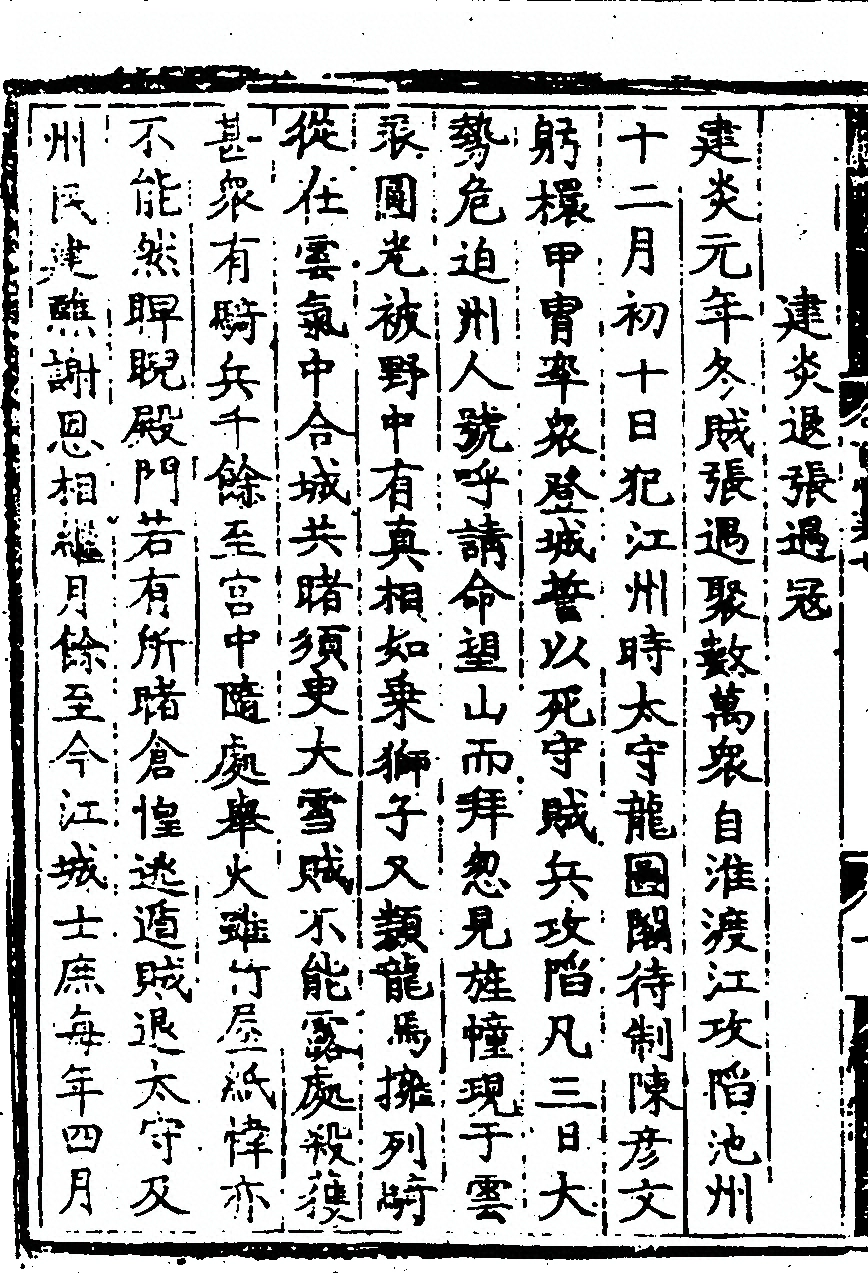 建炎退張遇冦
建炎元年冬賊張遇聚數萬衆自淮渡江攻陷池州
十二月初十日犯江州時太守龍圖閣待制陳彦文
躬擐甲胄率衆登城誓以死守賊兵攻陷凡三日大
勢危迫州人號呼請命望山而拜忽見旌幢現于雲
表圓光被野中有真相如乗獅子又類龍馬擁列騎
從在雲氣中合城共睹須臾大雪賊不能露處殺獲
甚衆有騎兵千餘至宫中隨處舉火雖竹屋紙幃亦
不能然睥睨殿門若有所睹倉惶逃遁賊退太守及
州民建醮謝恩相繼月餘至今江城士庶每年四月